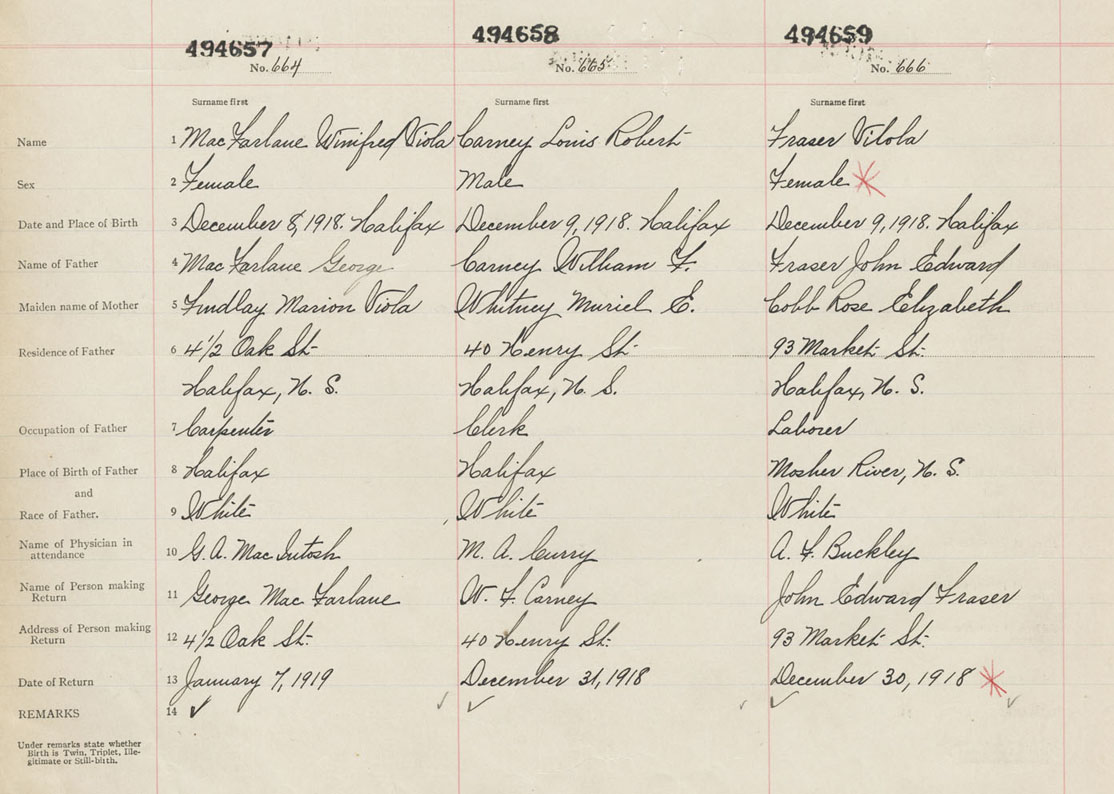 494657 494658 494659
No. 664 No. 665 No. 666
Surname first Surname first Surname first
Name 1 MacFarlane Winifred Viola Carney Louis Robert Fraser Vilola
Sex 2 Female Male Female
Date and Place of Birth 3 December 8, 1918. Halifax December 9, 1918. Halifax December 9, 1918. Halifax
Name of Father 4 MacFarlane George Carney William F. Fraser John Edward
Maiden name of Mother 5 Findlay Marion Viola Whitney Muriel E. Cobb Rose Elizabeth
Residence of Father 6 4 1/2 Oak St. 40 Henry St. 93 Market St.
Halifax, N. S. Halifax, N. S. Halifax, N. S.
Occupation of Father 7 Carpenter Clerk Laborer
Place of Birth of Father 8 Halifax Halifax Mosher River, N. S.
and
Race of Father. 9 White White White
Name of Physician in attendance 10 G. A. MacIntosh M. A. Curry A. F. Buckley
Name of Person making Return 11 George MacFarlane W. F. Carney John Edward Fraser
Address of Person making Return 12 4 1/2 Oak St. 40 Henry St. 93 Market St.
Date of Return 13 January 7, 1919 December 31, 1918 December 30, 1918
REMARKS 14 ✓ ✓ ✓
Under remarks state whether
Birth is Twin, Triplet, Ille-
gitimate or Still-birth.